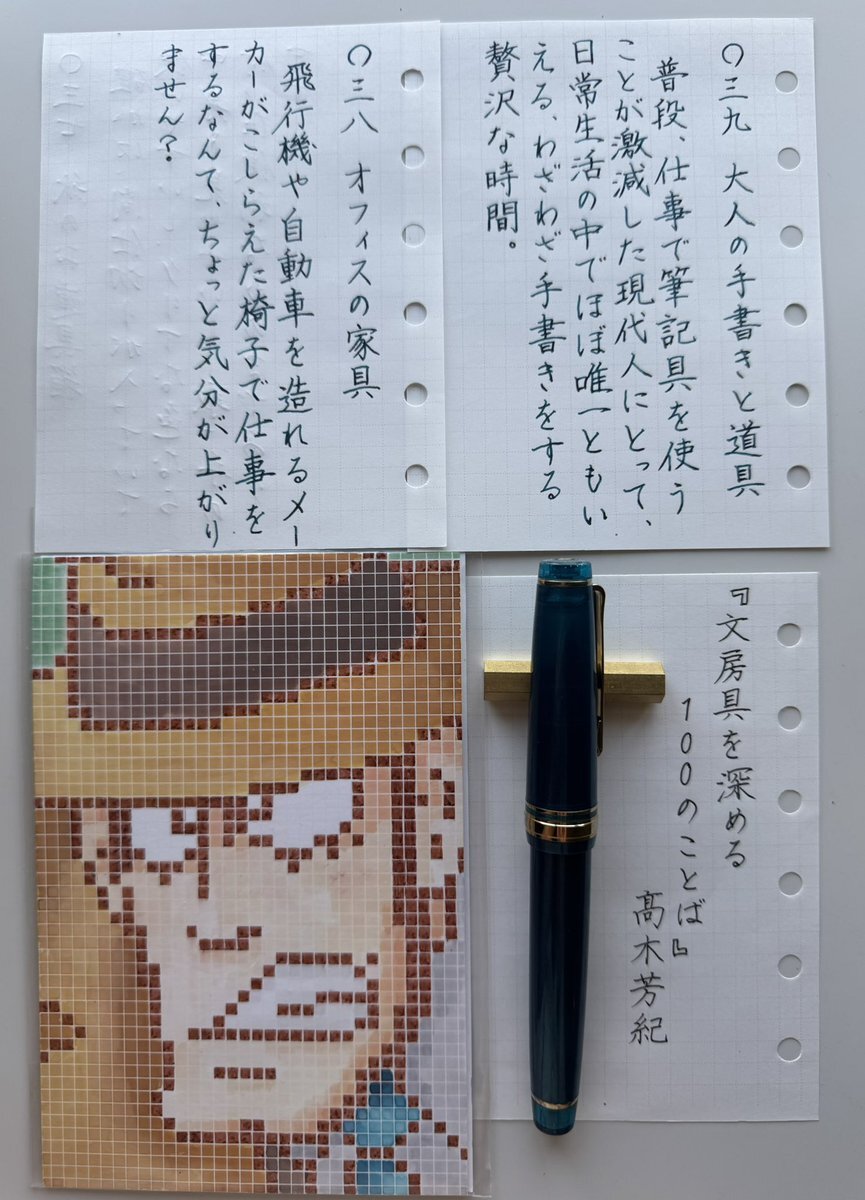 〇三九 大人の手書きと道具
普段、仕事で筆記具を使う
ことが激減した現代人にとって、
日常生活の中でほぼ唯一ともい
える、わざわざ手書きをする
贅沢な時間。
〇三八 オフィスの家具
飛行機や自動車を造れるメー
カーがこしらえた椅子で仕事を
するなんて、ちょっと気分が上がり
ません？
『文房具を深める
100のことば』
髙木芳紀